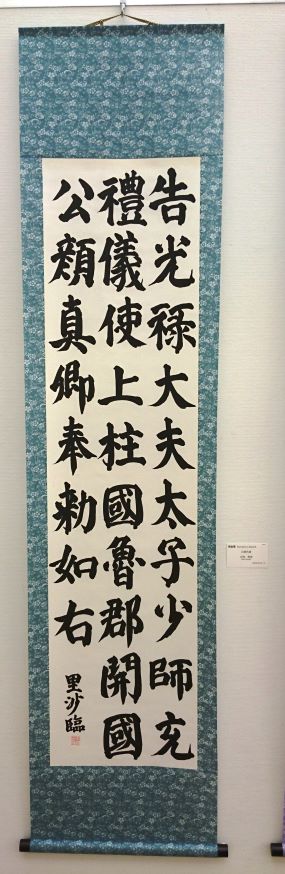 告光祿大夫太子少師充
禮儀使上柱國魯郡開國
公顏真卿奉勅如右
里沙臨